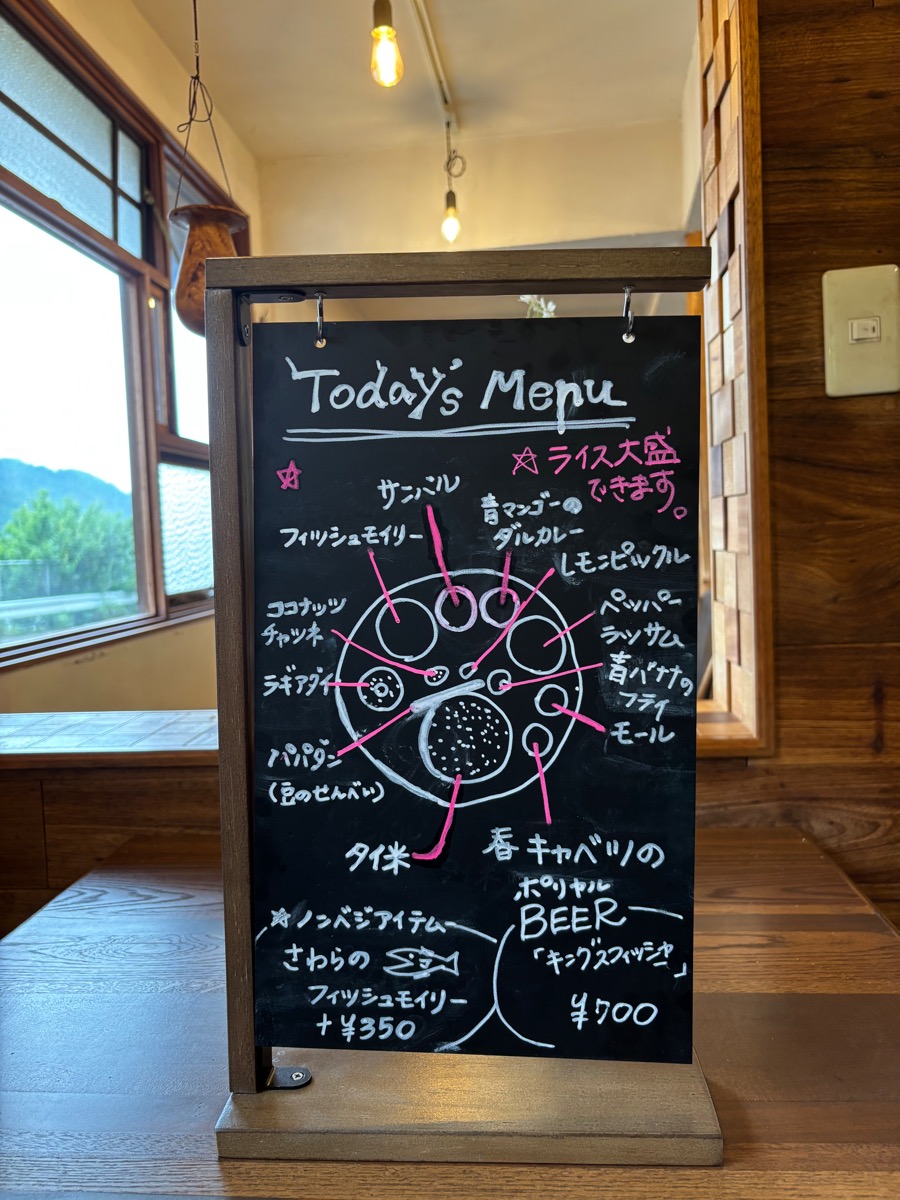 Today's Menu
☆ライス大盛
できます。
サンバル
フィッシュモイリー
青マンゴーの
ダルカレー
レモンピックル
ココナッツ
チャツネ
ペッパー
ラッサム
ラギアダイ
青バナナの
フライ
モール
パパダン
(豆のせんべい)
タイ米
春キャベツの
ポリヤル
☆ノンベジアイテム
さわらの
フィッシュモイリー
+¥350
BEER
「キングスフィッシャー」
¥700